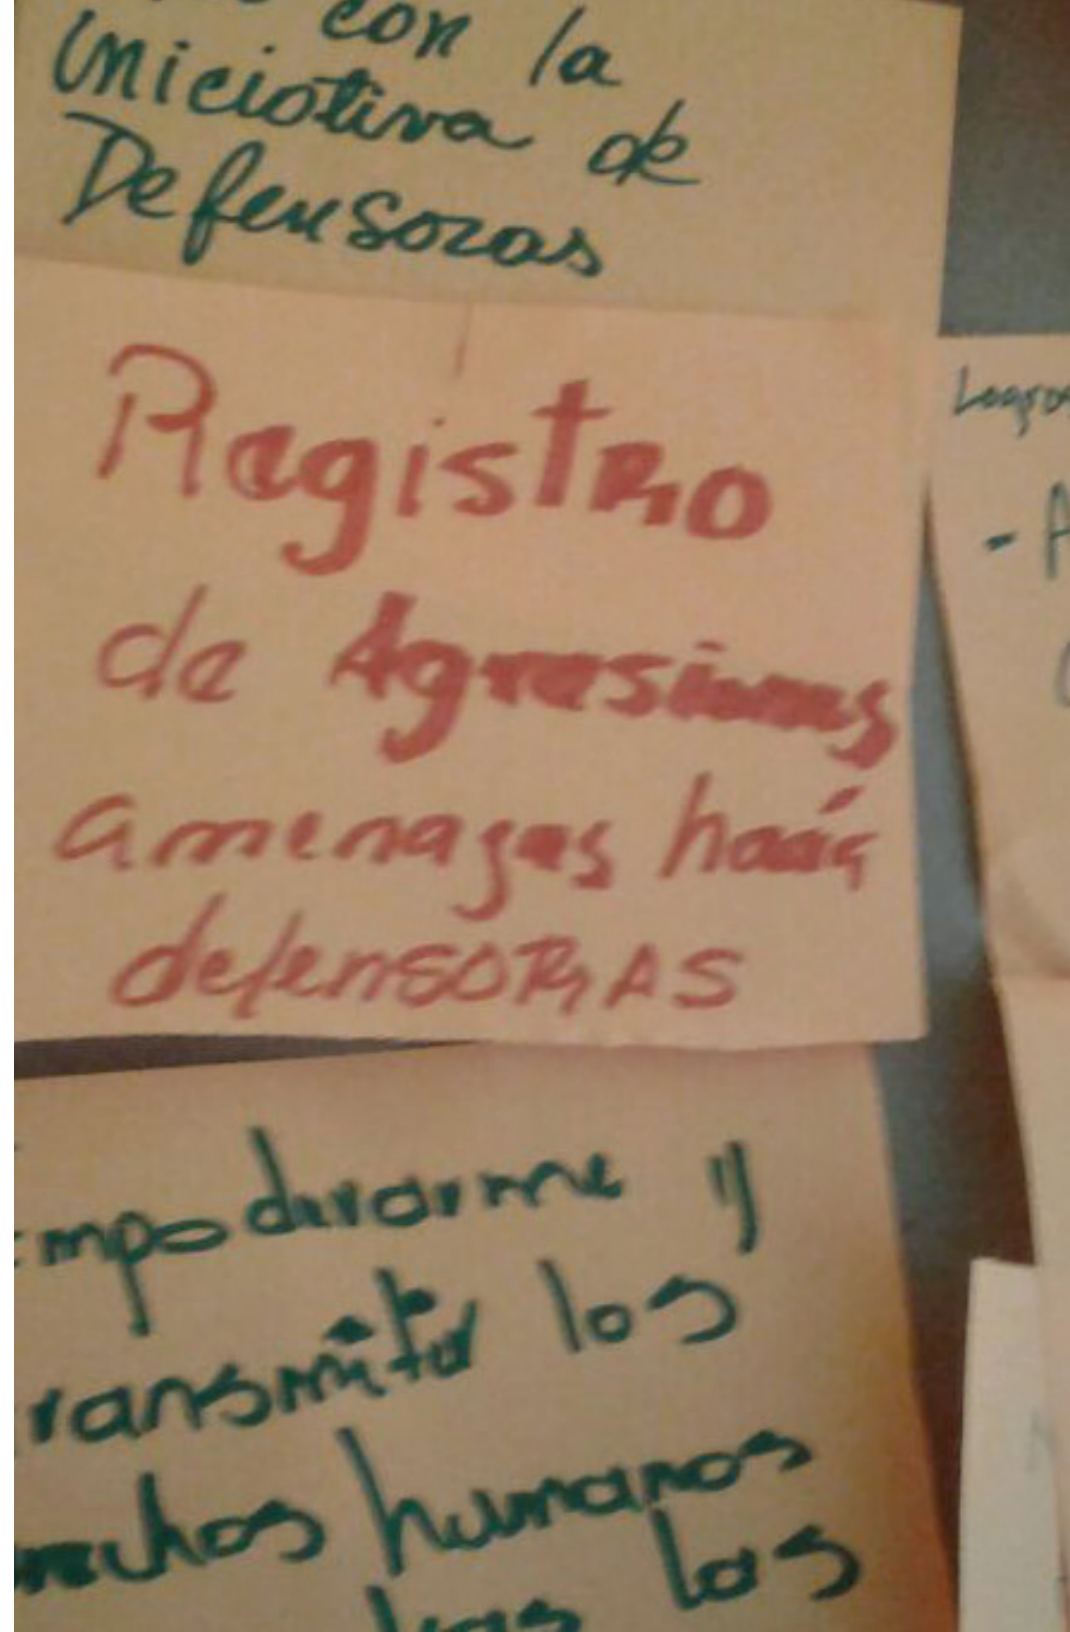 con la
Iniciativa de
Defensoras
Registro
de Agresiones
amenazas hacía
defensoras
Empoderarme y
transmitir los
derechos humanos
los
Logros
- A